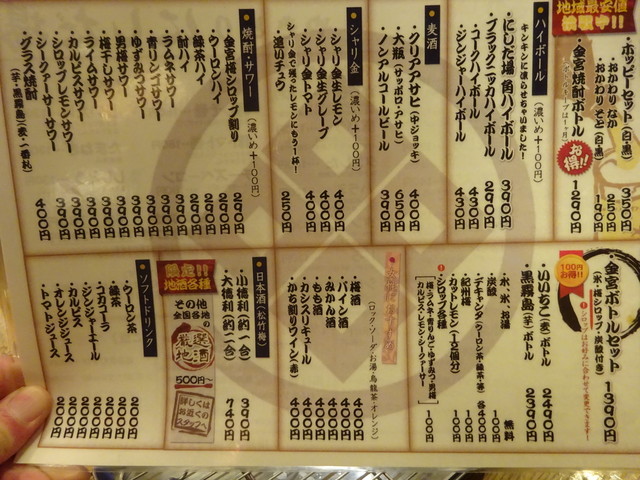 地域最安値
挑戦中!!
・ホッピーセット(白・黒) 350円
・おかわり なか 250円
・おかわり そと(白・黒) 190円
・金宮焼酎ボトル 1290円
お得!!
ハイボール (濃いめ+100円)
キンキンに凍らせちゃいました!
・にしだ場 角ハイボール 390円
・ブラックニッカハイボール 290円
・コークハイボール 430円
・ジンジャーハイボール 430円
麦酒
・クリアアサヒ(中ジョッキ) 400円
・大瓶(サッポロ・アサヒ) 650円
・ノンアルコールビール 390円
シャリ金 (濃いめ+100円)
・シャリ金生レモン 400円
・シャリ金生グレープ 400円
・シャリ金トマト 400円
シャリ金で残ったレモンにもう1杯!
・追いチュウ 250円
焼酎・サワー (濃いめ+100円)
・金宮梅シロップ割り 290円
・ウーロンハイ 290円
・緑茶ハイ 290円
・酎ハイ 290円
・ラムネサワー 390円
・青リンゴサワー 390円
・ゆずみつサワー 390円
・男梅サワー 390円
・梅干しサワー 390円
・ライムサワー 390円
・カルピスサワー 390円
・シロップレモンサワー 390円
・シークァーサーサワー 390円
・グラス焼酎(芋・黒霧島)(麦・一番札) 400円
・金宮ボトルセット 1390円
(氷・梅シロップ・炭酸付き)
①シロップはお好みに合わせて変更できます!
100円お得!!
・いいちこ(麦)ボトル 2490円
・黒霧島(芋)ボトル 2390円
・水、氷、お湯 無料
・炭酸 100円
・デキャンタ(ウーロン茶・緑茶・等) 各400円
・紀州梅 100円
・カットレモン(1/2個分) 100円
①シロップ各種 100円
梅・ラムネ・青りんご・ゆずみつ・男梅
カルピス・レモン・シークァーサー
(ロック・ソーダ・お湯・烏龍茶・オレンジ)
・梅酒 400円
・パイン酒 400円
・みかん酒 400円
・もも酒 400円
・カシスリキュール 400円
・かち割りワイン(赤) 400円
日本酒(松竹梅)
・小徳利(約一合) 390円
・大徳利(約二合) 740円
限定!!
地酒各種
その他
全国各地の
厳選
地酒
500円〜
詳しくは
お近くの
スタッフへ
ソフトドリンク
・ウーロン茶 200円
・緑茶 200円
・コカコーラ 200円
・ジンジャーエール 200円
・カルピス 200円
・オレンジジュース 200円
・トマトジュース 200円